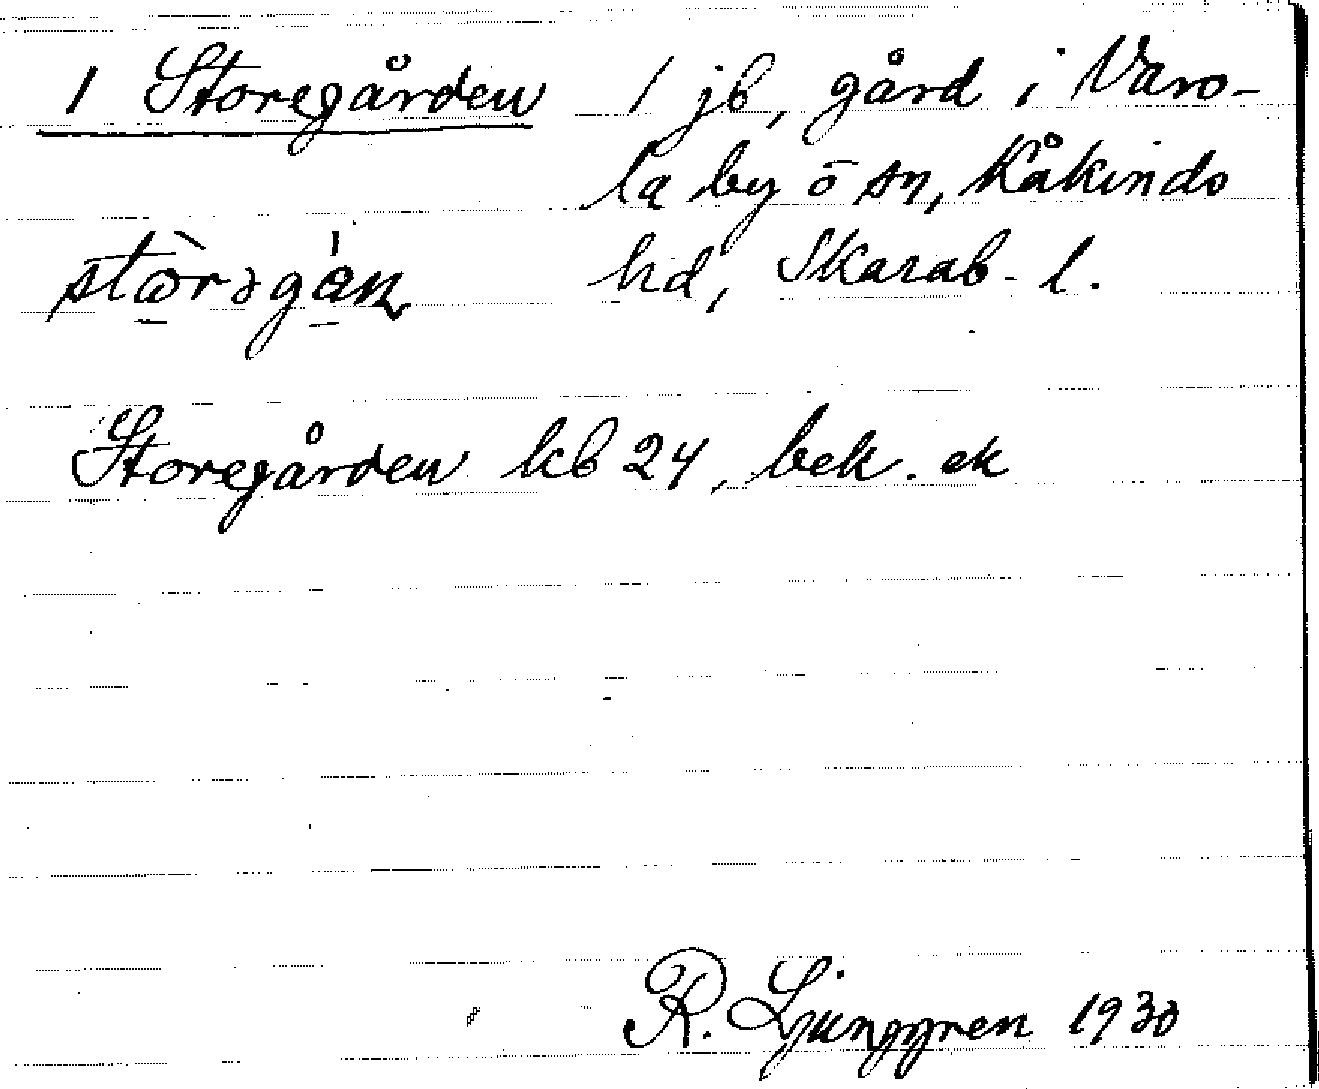 1 Storegården 1 jb, gård i Varo-
la by o sn, Kåkinds
hd, Skarab. l.
Storegården kb 24, bek. ek
R. Ljunggren 1930